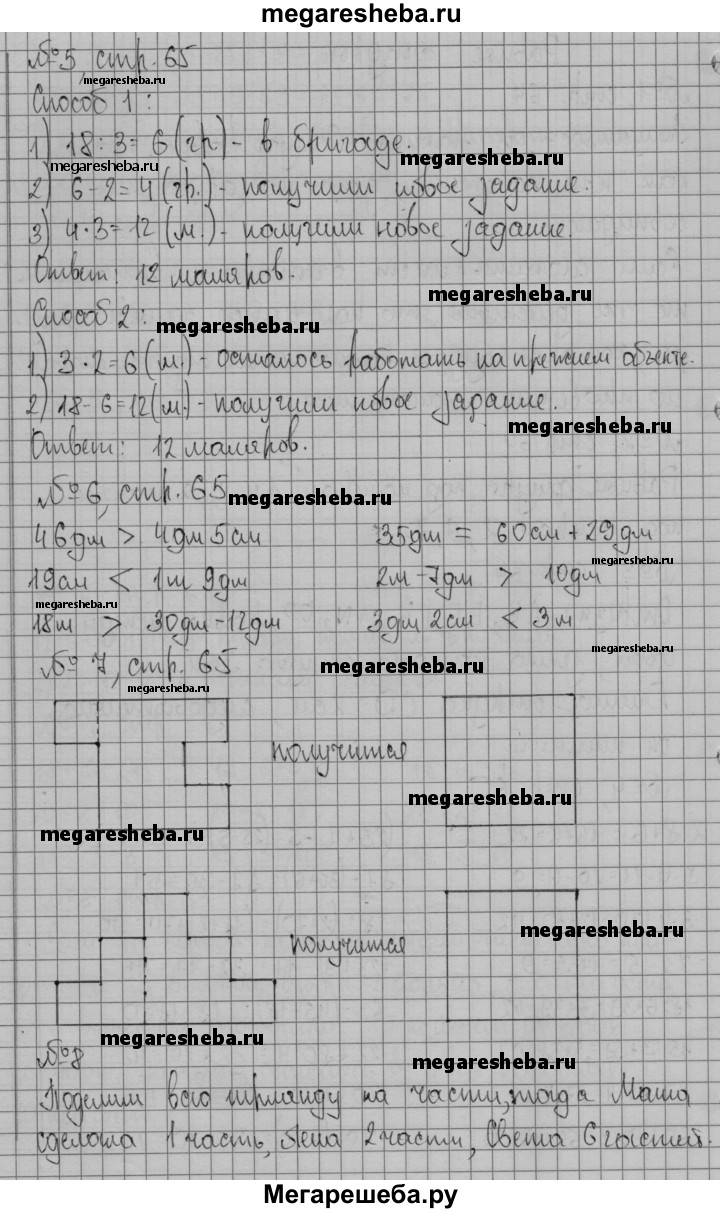 megaresheba.ru
№5 стр. 65
megaresheba.ru
Способ 1:
1) 18:3=6 (гр.) - в бригаде.
megaresheba.ru
megaresheba.ru
2) 6-2=4 (гр.) - получили новое задание.
3) 4·3=12 (м.) - получили новое задание.
Ответ: 12 маляров.
megaresheba.ru
Способ 2:
megaresheba.ru
1) 3·2=6 (м.) - осталось работать на прежнем объекте.
2) 18-6=12 (м.) - получили новое задание.
megaresheba.ru
Ответ: 12 маляров.
№6, стр. 65
megaresheba.ru
46дм > 4дм 5см 35дм = 60см + 29дм
megaresheba.ru
19см < 1м 9дм 2м-7дм > 10дм
megaresheba.ru
18м > 30дм-12дм 3дм 2см < 3м
megaresheba.ru
№7, стр. 65
megaresheba.ru
megaresheba.ru
получится
megaresheba.ru
megaresheba.ru
megaresheba.ru
получится
megaresheba.ru
№8
megaresheba.ru
Поделим всю гирлянду на части, тогда Маша
сделала 1 часть, Лена 2 части, Света 6 частей.
Мегарешеба.ру